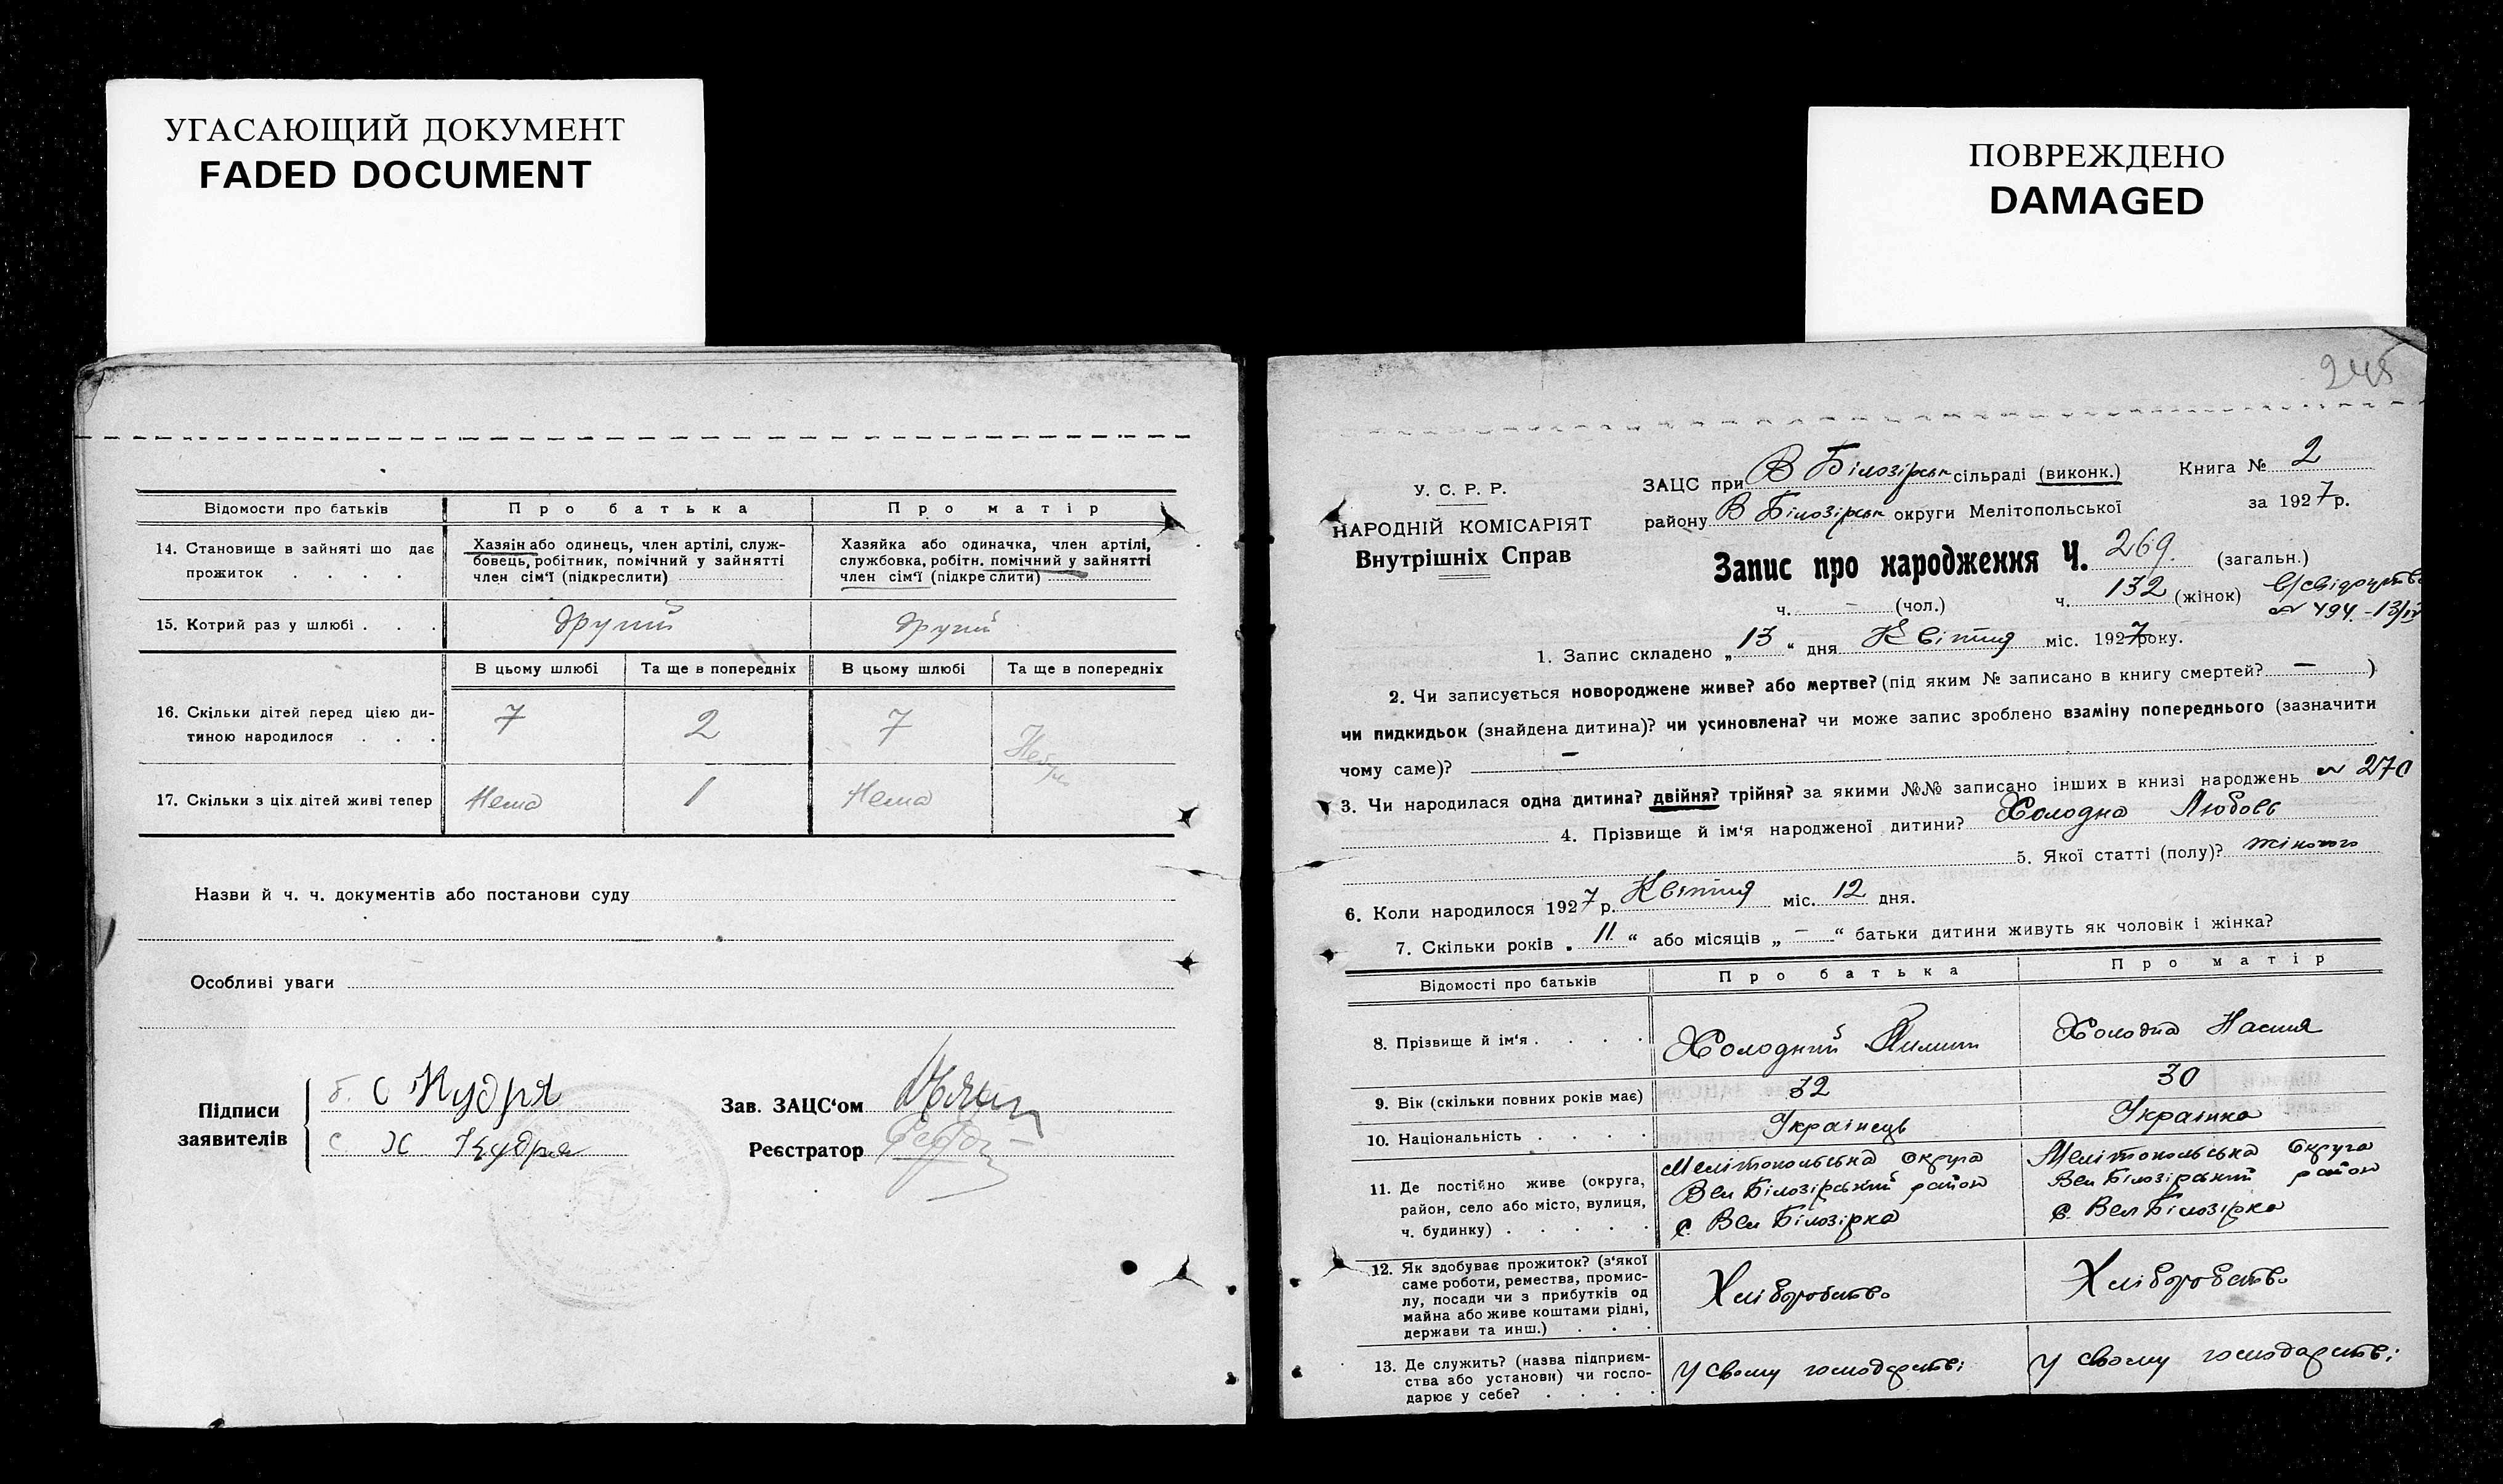 УГАСАЮЩИЙ ДОКУМЕНТ
FADED DOCUMENT
Відомости про батьків
Про батька
Про матір
14. Становище в зайняті що дає прожиток . . . .
Хазяін або одинець, член артілі, служ-
бовець, робітник, помічний у зайнятті
член сім'ї (підкреслити)
Хазяйка або одиначка, член артілі,
службовка, робітн. помічний у зайнятті
член сім'ї (підкреслити)
15. Котрий раз у шлюбі . . .
другий
другий
В цьому шлюбі
Та ще в попередніх
В цьому шлюбі
Та ще в попередніх
16. Скільки дітей перед цією ди-
тиною народилося . . .
7
2
7
17. Скільки з ціх дітей живі тепер
Нема
1
Нема
Назви й ч. ч. документів або постанови суду
Особливі уваги
Підписи
заявителів
С Кудря
Х Кудря
Зав. ЗАЦС'ом
Реєстратор
ПОВРЕЖДЕНО
DAMAGED
245
У. С. Р. Р.
НАРОДНІЙ КОМІСАРІЯТ
Внутрішніх Справ
ЗАЦС при В Білозірськ сільраді (виконк.)
Книга № 2
району В Білозірськ округи Мелітопольської
за 1927 р.
Запис про народження Ч. 269. (загальн.)
ч. — (чол.) ч. 132 (жінок)
№ 494 - 13/IV
1. Запис складено „ 13 “ дня Квітня міс. 1927 року.
2. Чи записується новороджене живе? або мертве? (під яким № записано в книгу смертей? — )
чи пидкидьок (знайдена дитина)? чи усиновлена? чи може запис зроблено взаміну попереднього (зазначити
чому саме)? —
3. Чи народилася одна дитина? двійня? трійня? за якими №№ записано інших в книзі народжень № 270
4. Прізвище й ім'я народженої дитини? Холодна Любовь
5. Якої статті (полу)? жіночого
6. Коли народилося 1927 р. Квітня міс. 12 дня.
7. Скільки років „ 11 “ або місяців „ — “ батьки дитини живуть як чоловік і жінка?
Відомості про батьків
Про батька
Про матір
8. Прізвище й ім'я . . . .
Холодний Пилип
Холодна Настя
9. Вік (скільки повних років має)
32
30
10. Національність . . . .
Українець
Українка
11. Де постійно живе (округа,
район, село або місто, вулиця,
ч. будинку) . . . . .
Мелітопольська округа
Вел Білозірський район
с. Вел Білозірка
Мелітопольська округа
Вел Білозірський район
с. Вел Білозірка
12. Як здобуває прожиток? (з'якої
саме роботи, ремества, промис-
лу, посади чи з прибутків од
майна або живе коштами рідні,
держави та инш.) . . .
Хліборобство
Хліборобство
13. Де служить? (назва підприєм-
ства або установи) чи госпо-
дарює у себе? . . . .
У свому господарстві
У свому господарстві